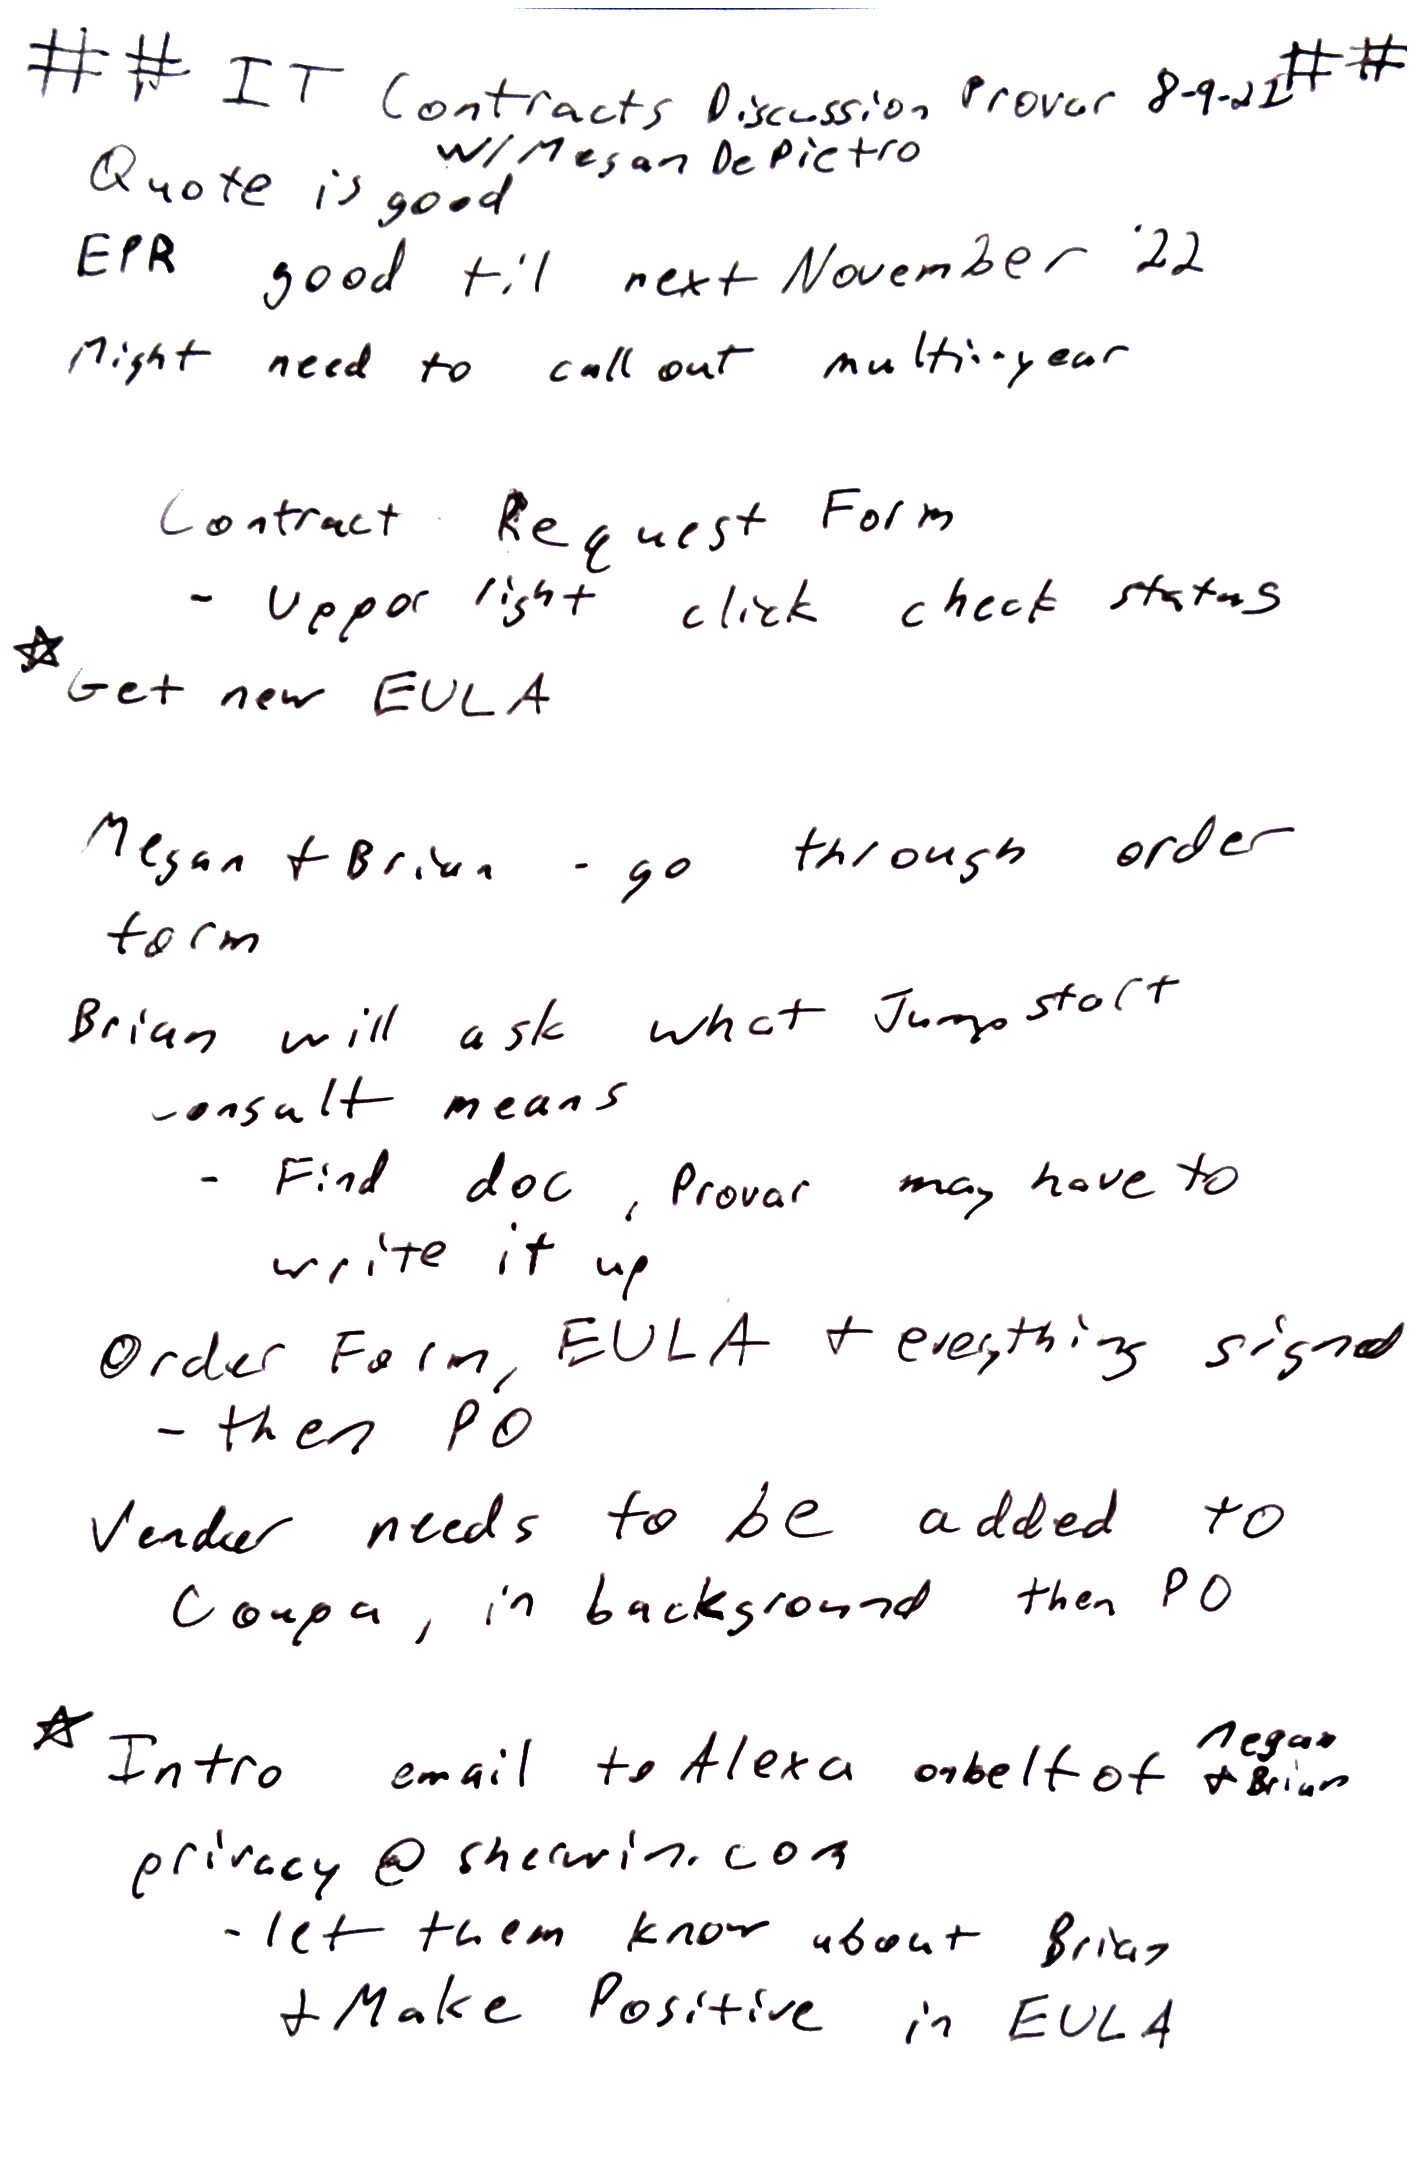 ## IT Contracts Discussion Provar 8-9-21 ##
w/ Megan DePietro
Quote is good
EPR good til next November '22
Might need to call out multi-year
Contract Request Form
- Upper right click check status
☆ Get new EULA
Megan + Brian - go through order
form
Brian will ask what Jumpstart
consult means
- Find doc, Provar may have to
write it up
Order Form, EULA + everything signed
- then PO
Vendor needs to be added to
Coupa, in background then PO
☆ Intro email to Alexa onbelf of Megan
+ Brian
privacy@sherwin.com
- let them know about Brian
+ Make Positive in EULA